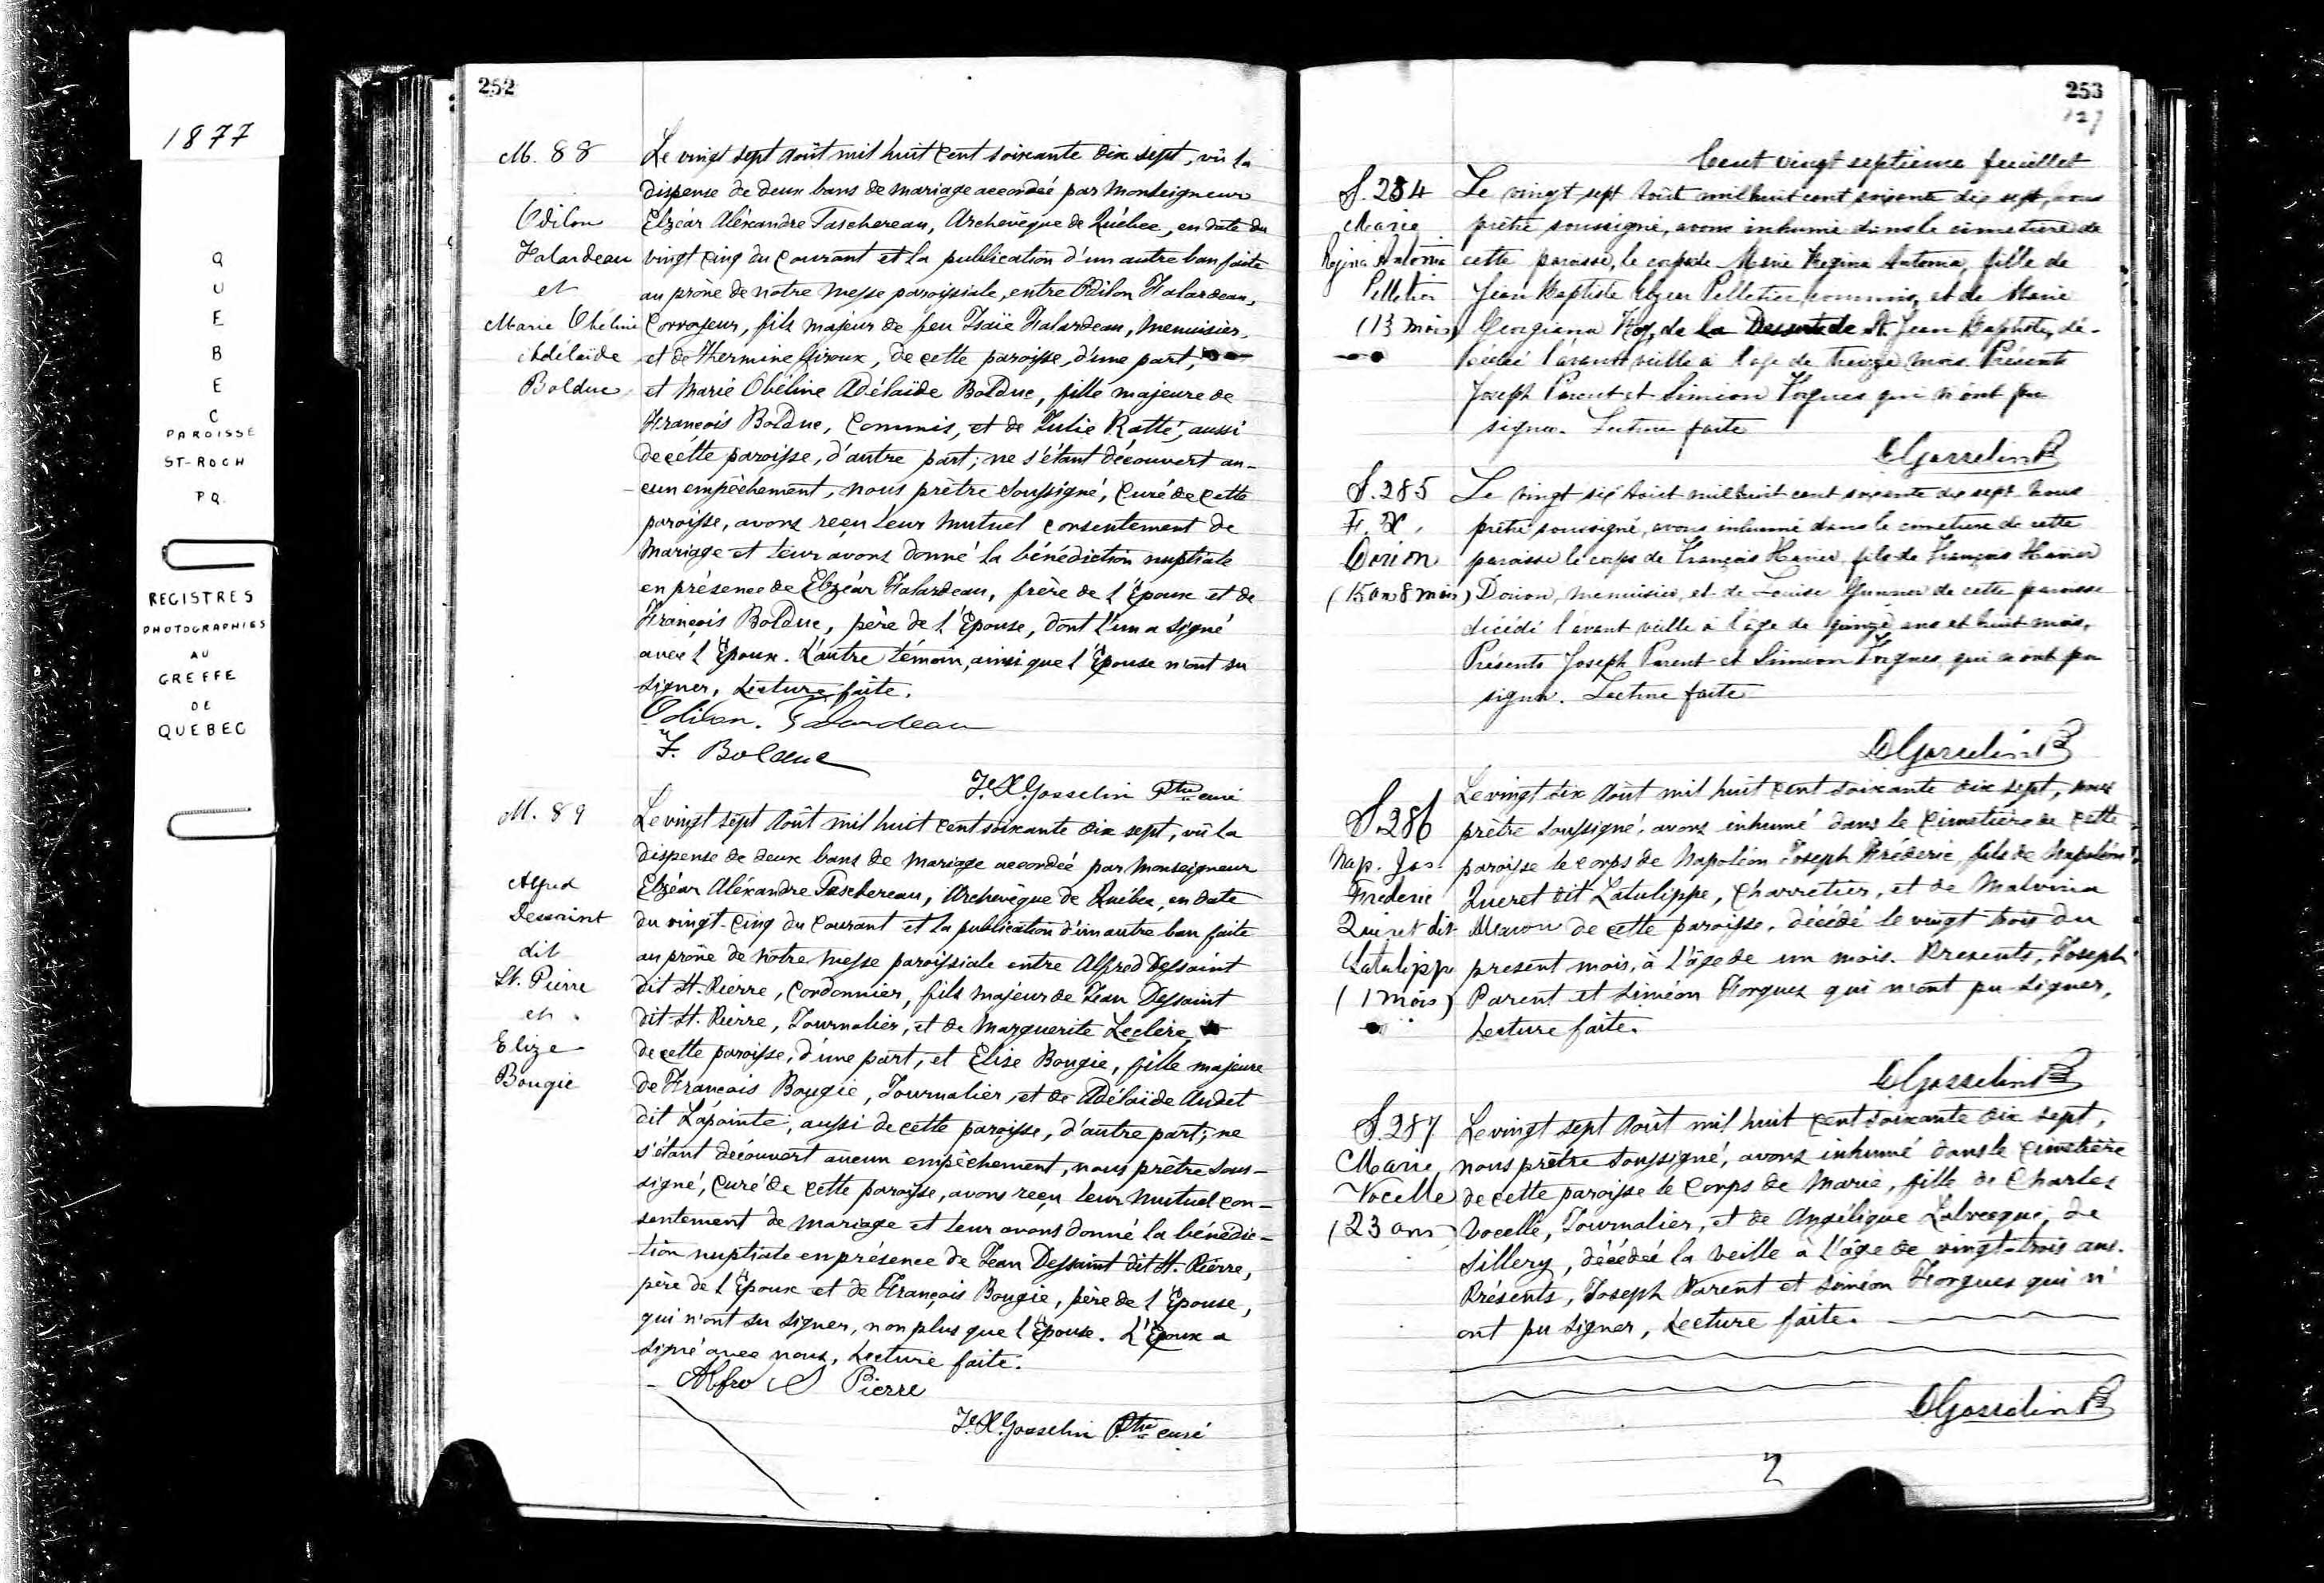 1877
QUEBEC
PAROISSE
ST-ROCH
PQ.
REGISTRES
PHOTOGRAPHIES
AU
GREFFE
DE
QUEBEC
252
M. 88
Odilon
Falardeau
et
Marie Obéline
Adélaïde
Bolduc
Le vingt sept Août mil huit cent soixante dix sept, vû la
dispense de deux bans de mariage accordée par Monseigneur
Elzéar Aléxandre Taschereau, Archevêque de Québec, en date du
vingt cinq du courant et la publication d'un autre ban faite
au prône de notre Messe paroissiale, entre Odilon Falardeau,
Corroyeur, fils majeur de feu Isaïe Falardeau, Menuisier,
et de Hermine Giroux, de cette paroisse, d'une part,
et Marie Obéline Adélaïde Bolduc, fille majeure de
François Bolduc, Commis, et de Julie Ratté, aussi
de cette paroisse, d'autre part; ne s'étant découvert au-
cun empêchement, nous prêtre soussigné, Curé de cette
paroisse, avons reçu leur mutuel consentement de
Mariage et leur avons donné la bénédiction nuptiale
en présence de Elzéar Falardeau, frère de l'Époux et de
François Bolduc, père de l'Épouse, dont l'un a signé
avec l'Époux. L'autre témoin, ainsi que l'Épouse n'ont su
signer, Lecture faite.
Odilon. Falardeau
F. Bolduc
F. X. Gosselin Ptre curé
M. 89
Alfred
Dessaint
dit
St. Pierre
et
Elize
Bougie
Le vingt sept Août mil huit cent soixante dix sept, vû la
dispense de deux bans de Mariage accordée par Monseigneur
Elzéar Aléxandre Taschereau, Archevêque de Québec, en date
du vingt-cinq du courant et la publication d'un autre ban faite
au prône de notre Messe paroissiale entre Alfred Dessaint
dit St. Pierre, Cordonnier, fils majeur de Jean Dessaint
dit St. Pierre, Journalier, et de Marguerite Leclerc,
de cette paroisse, d'une part, et Elise Bougie, fille majeure
de François Bougie, Journalier, et de Adélaïde Audet
dit Lapointe, aussi de cette paroisse, d'autre part; ne
s'étant découvert aucun empêchement, nous prêtre sous-
signé, Curé de cette paroisse, avons reçu leur mutuel con-
sentement de Mariage et leur avons donné la bénédic-
tion nuptiale en présence de Jean Dessaint dit St. Pierre,
père de l'Époux et de François Bougie, père de l'Épouse,
qui n'ont su signer, non plus que l'Épouse. L'Époux a
signé avec nous, Lecture faite.
Alfred St Pierre
F. X. Gosselin Ptre curé
253
127
Cent vingt septième feuillet
S. 284
Marie
Regina Antonia
Pelletier
(13 mois)
Le vingt sept Août mil huit cent soixante dix sept, nous
prêtre soussigné, avons inhumé dans le cimetière de
cette paroisse, le corps de Marie Regina Antonia, fille de
Jean Baptiste Elzear Pelletier, commis, et de Marie
Georgiana Roy, de la Desserte de St. Jean Baptiste, dé-
cédée l'avant veille à l'âge de treize mois. Présents
Joseph Parent et Siméon Forgues qui n'ont pu
signer. Lecture faite
D Gosselin Ptre
S. 285
F. X.
Dorion
(15 ans 8 mois)
Le vingt six Août mil huit cent soixante dix sept nous
prêtre soussigné, avons inhumé dans le cimetière de cette
paroisse le corps de François Xavier, fils de François Xavier
Dorion, menuisier, et de Louise de cette paroisse
décédé l'avant veille à l'âge de quinze ans et huit mois,
Présents Joseph Parent et Siméon Forgues, qui n'ont pu
signer. Lecture faite
D Gosselin Ptre
S. 286
Nap. Jos.
Frederic
Queret dit
Latulippe
(1 mois)
Le vingt six Août mil huit cent soixante dix sept, nous
prêtre soussigné, avons inhumé dans le Cimetière de cette
paroisse le corps de Napoléon Joseph Fréderic, fils de Napoléon
Queret dit Latulippe, Charretier, et de Malvina
de cette paroisse, décédé le vingt trois du
present mois, à l'âge de un mois. Presents, Joseph
Parent et Siméon Forgues qui n'ont pu signer,
Lecture faite.
D Gosselin Ptre
S. 287
Marie
Vocelle
(23 ans)
Le vingt sept Août mil huit cent soixante dix sept,
nous prêtre soussigné, avons inhumé dans le Cimetière
de cette paroisse le Corps de Marie, fille de Charles
Vocelle, Journalier, et de Angélique Labrecque, de
Sillery, décédée la veille à l'âge de vingt-trois ans.
Présents, Joseph Parent et Siméon Forgues qui n'
ont pu signer, Lecture faite.
D Gosselin Ptre